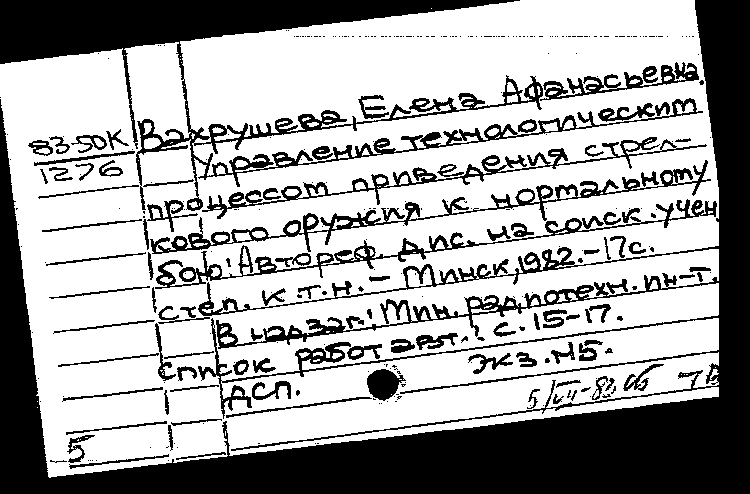 Вахрушева, Елена Афанасьевна.
83-50К
1276
Управление технологическим
процессом приведения стрел-
кового оружия к нормальному
бою: Автореф. дис. на соиск. учен.
степ. к.т.н. - Минск, 1982. - 17с.
В надзаг.: Мин. радиотехн. ин-т.
Список работ авт.: с. 15-17.
Экз. №5.
ДСП.
5/VII-83
5